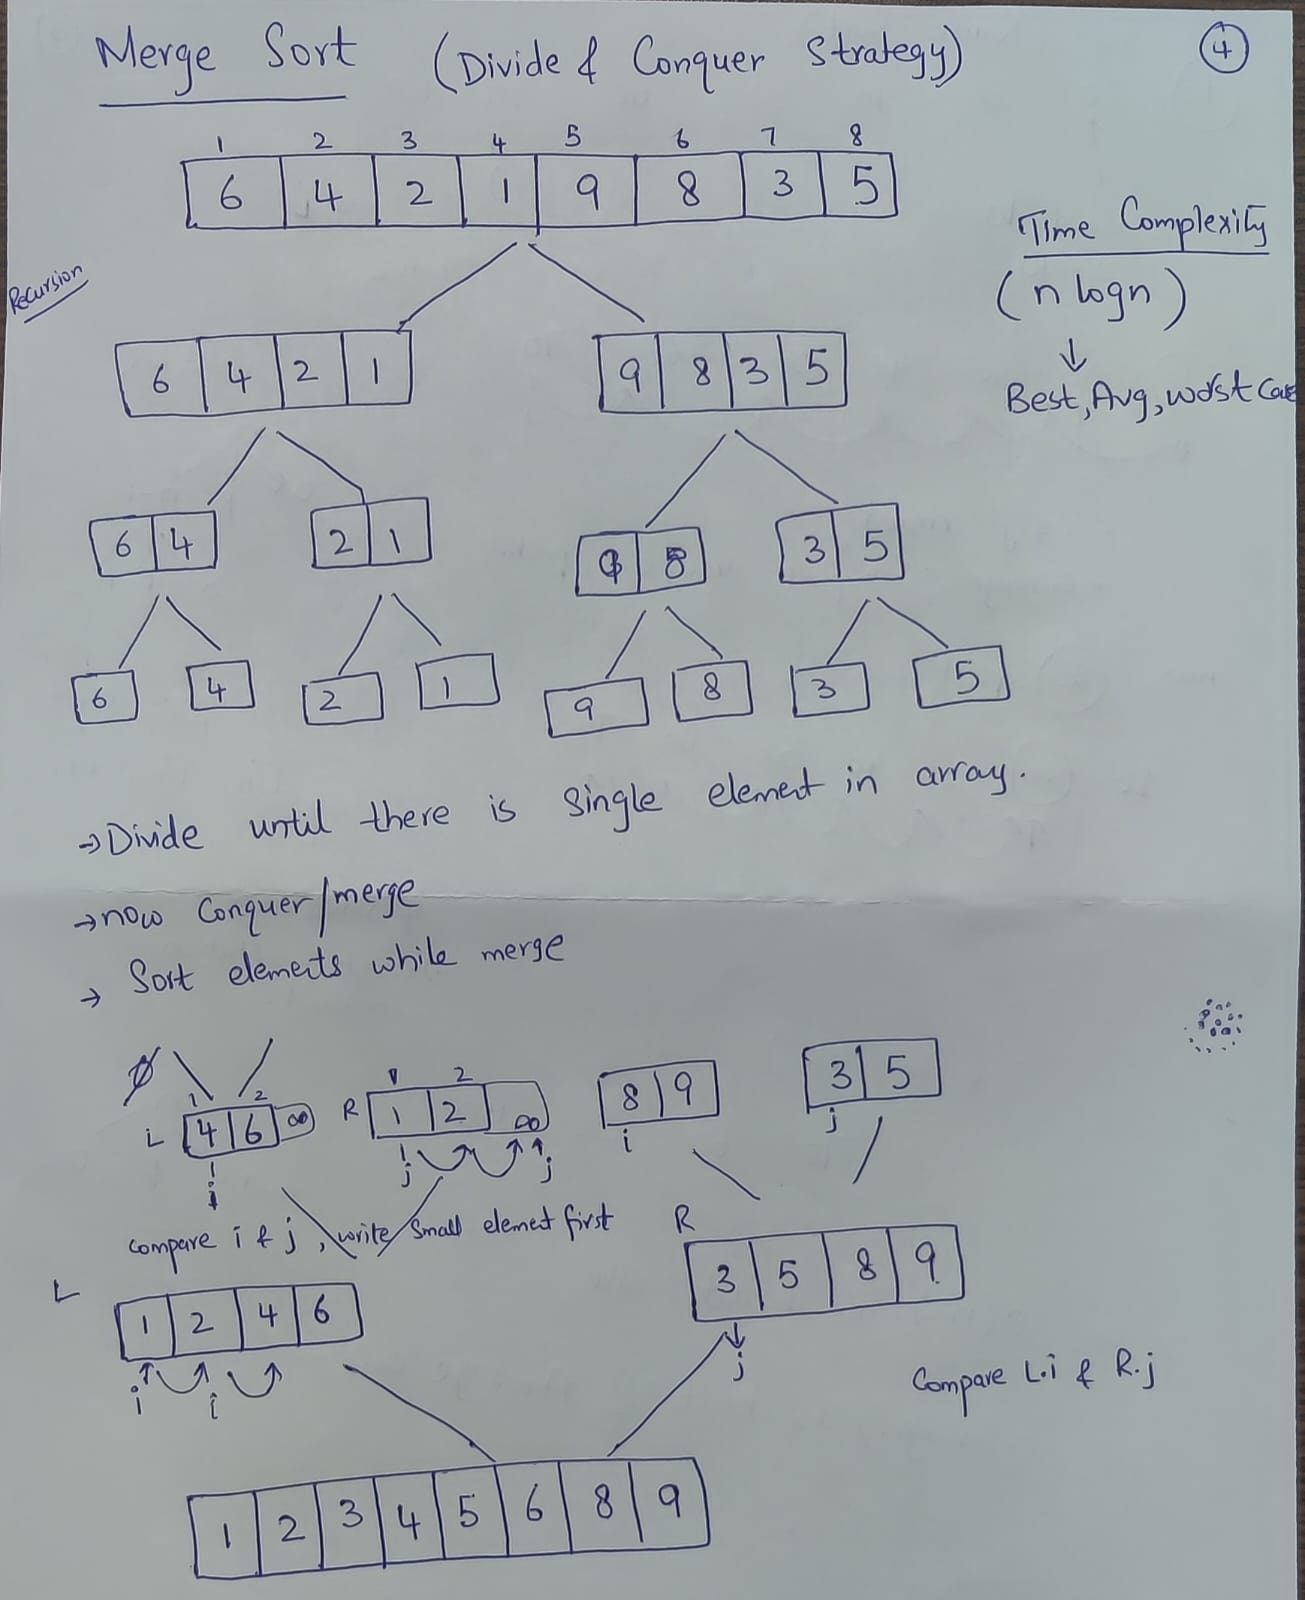 Merge Sort (Divide & Conquer Strategy) 4
1 2 3 4 5 6 7 8
6 4 2 1 9 8 3 5
Time Complexity
Recursion
(n logn)
↓
Best, Avg, worst Case
6 4 2 1 9 8 3 5
6 4 2 1 9 8 3 5
6 4 2 1 9 8 3 5
→ Divide until there is single element in array.
→ now Conquer/merge
→ Sort elements while merge
1 2 1 2
L 4 6 ∞ R 1 2 ∞ 8 9 3 5
i j j i j
compare i & j, write small element first
L 1 2 4 6 R 3 5 8 9
i i j
Compare L.i & R.j
1 2 3 4 5 6 8 9